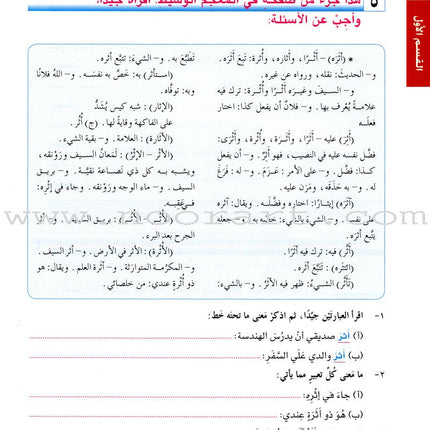 القسم الأول
هذا جزء من صفحة في المعجم الوسيط. اقرأه جيدًا،
وأجِبْ عن الأسئلة:
* (أثَرَه) – أَثْرًا، وأثاره، وأُثرة: تَبِعَ أثَرَه.
و– الحديثَ: نقله، ورواه عن غيره.
و– السيفَ وغيره أَثْرًا وأُثْرة: ترك فيه
علامةً يُعرف بها. و– فلانٌ أن يفعل كذا: اختار
فعلَه
(أَثِرَ) عليه – أَثَرًا، وأَثَرة، وأُثْرة، وأُثْرَى:
فضَّل نفسه عليه في النصيب، فهو أَثِرٌ. و– أن يفعل
كذا: فضّل. و– على الأمر: عَزَمَ. و– له: فَرَغَ
و– به: حَذَقَه، ومَرَن عليه.
(آثَرَه) إيثارًا: اختاره وفضّله. ويقال: آثره
على نفسه. و– الشيءَ بالشيء: خصَّه به. و– جعله
يتّبع أثَرَه.
(أثَّر) فيه: ترك فيه أثرًا.
(ائتثره): تتبَّع أثَرَه.
(تأثَّر) الشيءُ: ظهر فيه الأثَرُ. و– بالشيء:
تَطَبَّع به. و– الشيءَ: تتبَّع أثره.
(استأثر) به: خَصَّ به نفسَه. و– اللهُ فلانًا
وبه: توفَّاه.
(الإثار): شبه كيس يُشَدُّ
على الفاكهة وقايةً لها. (ج) أُثُر.
(الأثارة): العلامة. و– بقية الشيء.
(الأَثْر – الإِثْر): لَمَعانُ السيف ورَوْنقه،
ويشبه به كل ذي نَصاعة نقيَّة. و– بريق
السيف. و– ماء الوجه ورَوْنقه. وجاء في إثْره:
في عَقِبه.
الجرح بعد البرء.
(الأُثْرة): الأثر في الأرض. و– أثر السيف.
و– المكرُمة المتوارثة. و– أثرة العلم. ويقال: هو
ذو أُثرةٍ عندي: من خلصائي.
www.noorart.com
١- اقرأ العبارتَيْن جيِّدًا، ثم اذكرْ مَعنى ما تحتَه خَط:
(أ) آثرَ صديقي أنْ يدرُسَ الهندسة:
(ب) آثرَ والدي عَلَي السَّفَر:
٢- ما مَعنى كُلِّ تعبيرٍ مما يأتي:
(أ) جاءَ في إِثْرِهِ:
(ب) هُوَ ذو أَثَرَةٍ عِندي: